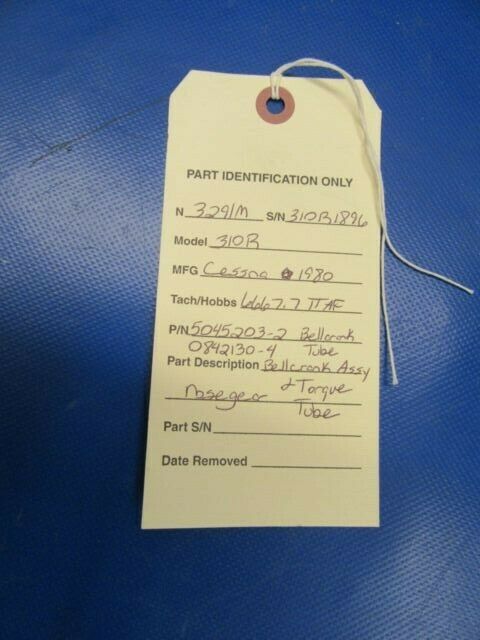 PART IDENTIFICATION ONLY
N 3291M S/N 310R1896
Model 310R
MFG Cessna 1980
Tach/Hobbs 6667.7 TTAF
P/N 5045203-2 Bellcrank
0842130-4 Tube
Part Description Bellcrank Assy
nosegear & Torque
Tube
Part S/N
Date Removed